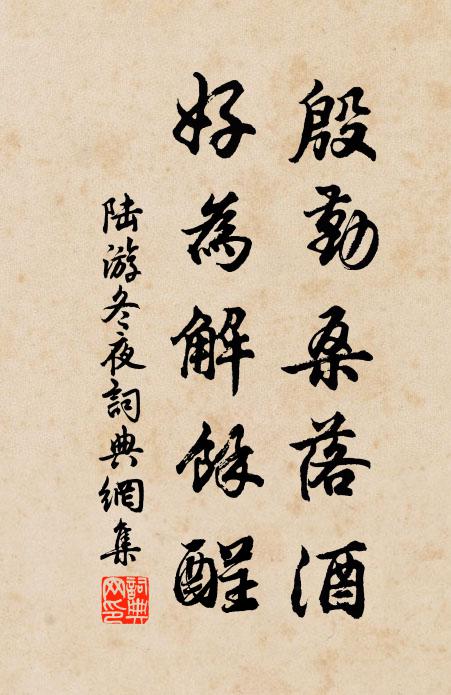 殷勤桑落酒
好為解餘酲
陆游冬夜詞典網集
詞典網印